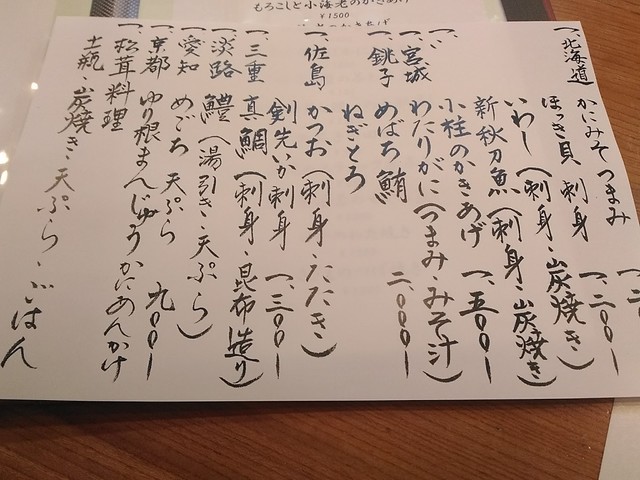 もろこしと小海老のかきあげ
¥1500
一、北海道
かにみそつまみ
ほっき貝 刺身 一、二〇〇ー
いわし(刺身・炭焼き)
新秋刀魚(刺身・炭焼き)
小柱のかきあげ 一、五〇〇ー
一、宮城
わたりがに(つまみ・みそ汁)
一、銚子
めばち鮪 二、〇〇〇ー
ねぎとろ
一、佐島
かつお(刺身・たたき)
剣先いか刺身 一、三〇〇ー
一、三重 真鯛(刺身・昆布造り)
一、淡路 鱧(湯引き・天ぷら)
一、愛知 めごち 天ぷら 九〇〇ー
一、京都 ゆり根まんじゅうかにあんかけ
一、松茸料理
土瓶 炭焼き・天ぷら・ごはん